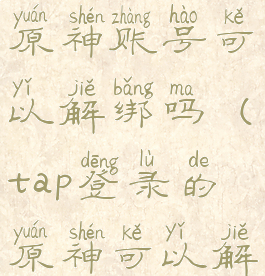 yuán shén zhàng hào kě
原神账号可
yǐ jiě bǎng ma
以解绑吗（
dēng lù de
tap登录的
yuán shén kě yǐ jiě
原神可以解